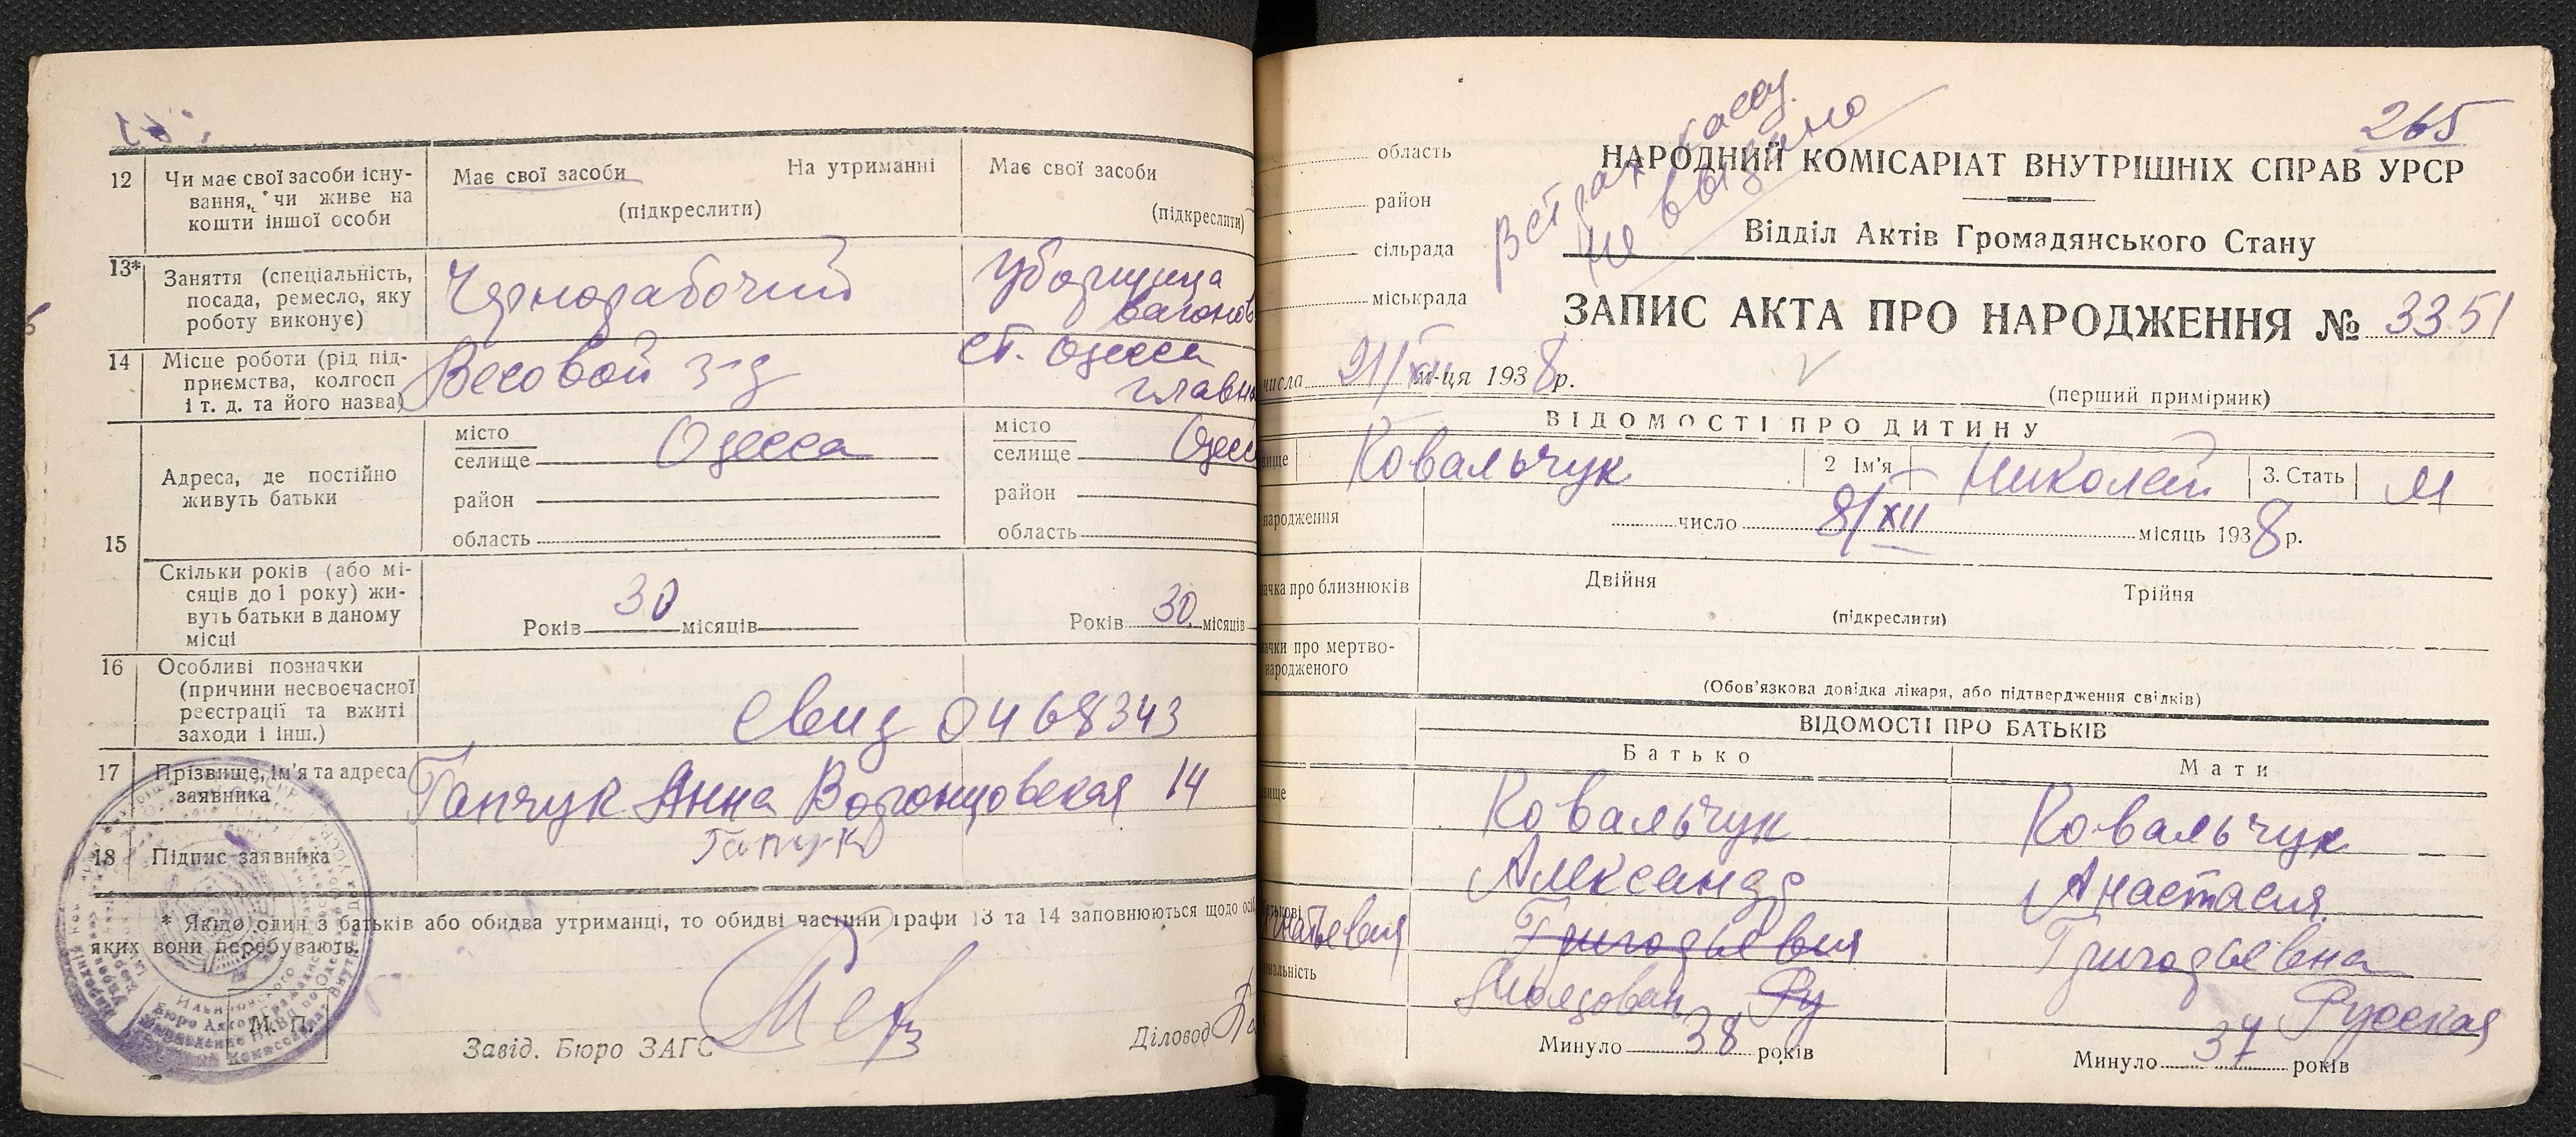 12 Чи має свої засоби існу-
вання, чи живе на
кошти іншої особи
Має свої засоби На утриманні
(підкреслити)
Має свої засоби
(підкреслити)
13* Заняття (спеціальність,
посада, ремесло, яку
роботу виконує)
Чернорабочий
Уборщица
вагонов
14 Місце роботи (рід під-
приємства, колгосп
і т. д. та його назва)
Весовой з-д
ст. Одесса
главн
15 Адреса, де постійно
живуть батьки
місто
селище Одесса
район
область
місто
селище Одесс
район
область
Скільки років (або мі-
сяців до 1 року) жи-
вуть батьки в даному
місці
Років 30 місяців
Років 30 місяців
16 Особливі позначки
(причини несвоєчасної
реєстрації та вжиті
заходи і інш.)
Свид 0468343
17 Прізвище, ім'я та адреса
заявника
Гапчук Анна Воронцовская 14
18 Підпис заявника
* Якщо один з батьків або обидва утриманці, то обидві частини графи 13 та 14 заповнюються щодо осі
яких вони перебувають.
М. П.
Завід. Бюро ЗАГС
Діловод
265
В страх кассу
не выдано
область
район
сільрада
міськрада
НАРОДНИЙ КОМІСАРІАТ ВНУТРІШНІХ СПРАВ УРСР
Відділ Актів Громадянського Стану
ЗАПИС АКТА ПРО НАРОДЖЕННЯ № 3351
числа 21/XII м-ця 1938 р.
(перший примірник)
ВІДОМОСТІ ПРО ДИТИНУ
вище Ковальчук 2 Ім'я Николай 3. Стать М
народження число 8/XII місяць 1938 р.
ачка про близнюків Двійня Трійня
(підкреслити)
ачки про мертво-
народженого
(Обов'язкова довідка лікаря, або підтвердження свідків)
ВІДОМОСТІ ПРО БАТЬКІВ
Батько Мати
вище Ковальчук Ковальчук
Александр Анастасия
батькові
Игнатьевич Григорьевич Григорьевна
ональність Молдован Ру Русская
Минуло 38 років Минуло 37 років